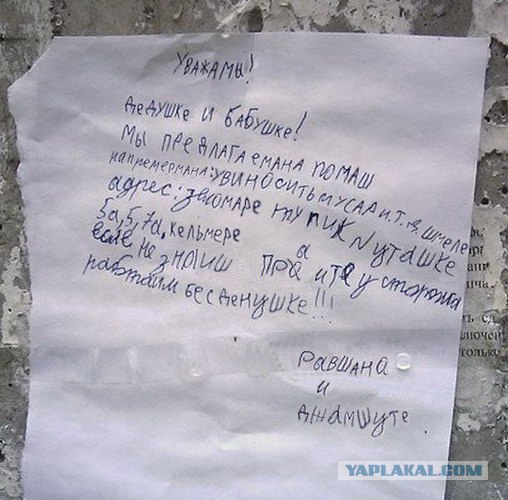 Уважамы!
дедушке и бабушке!
мы предлагаемана помаш
напремермана: увиноситьмусаа и.т.д. шмеле
адрес: звомаре тупик Nуташке
5а, 5, 7д, кельмере
есле не знаиш праа ите у сторожа
работаим бес денушке!!!
Равшана
и
джамшуте
ани
ича.
ть сд
ключен
только
YAPLAKAL.COM